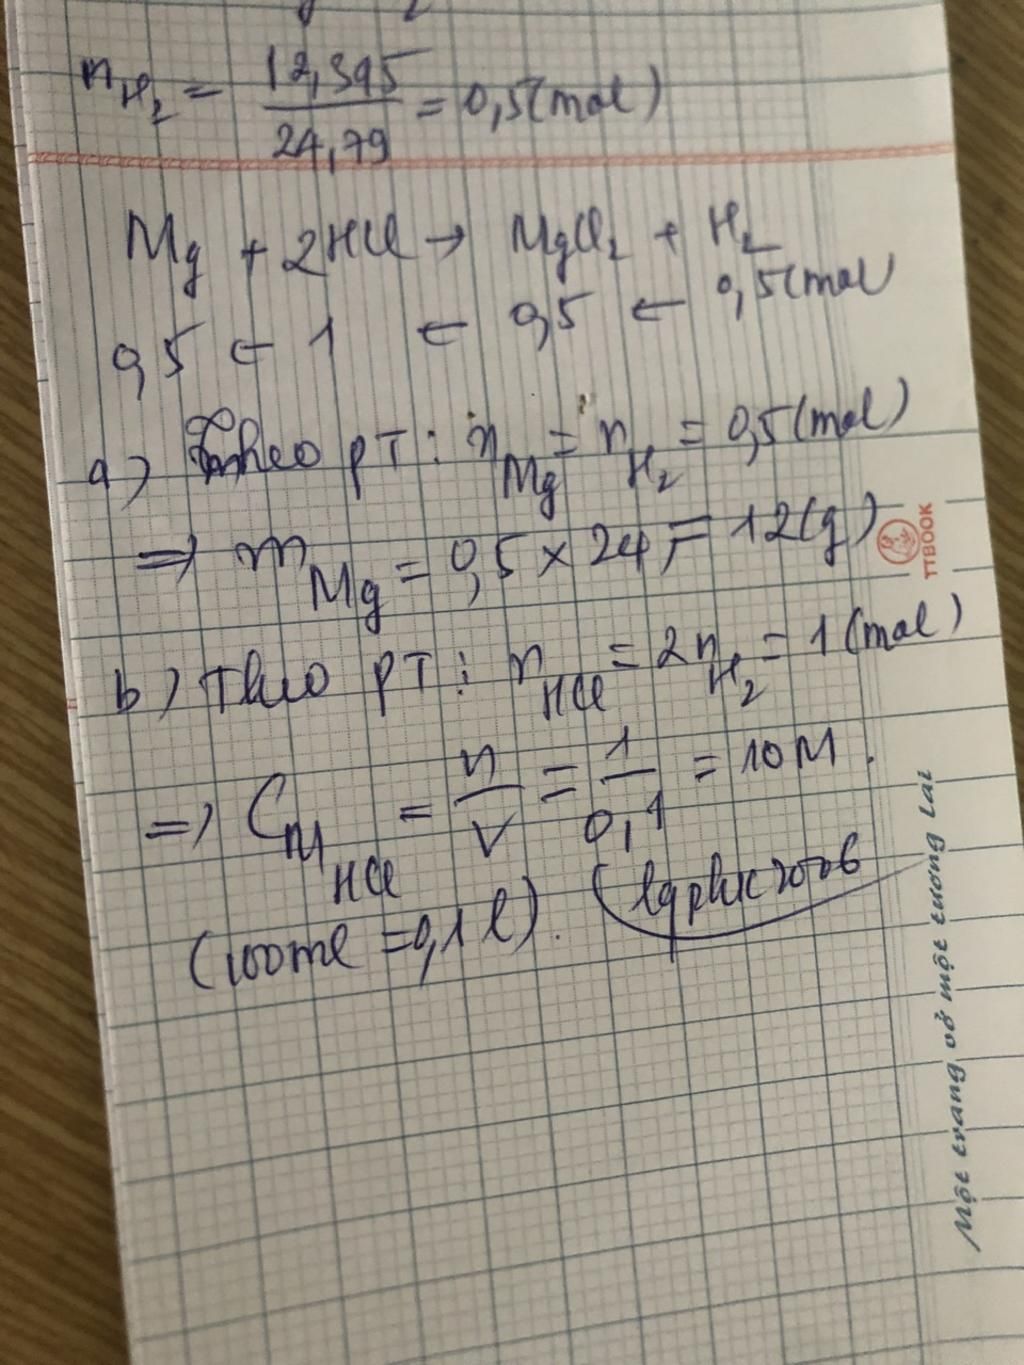 n H₂ = 12,395 / 24,79 = 0,5 (mol)
Mg + 2HCl → MgCl₂ + H₂
0,5 ← 1 ← 0,5 ← 0,5 (mol
a) Theo PT : n Mg = n H₂ = 0,5 (mol)
⇒ m Mg = 0,5 × 24 = 12 (g)
TTBOOK
b) Theo PT : n HCl = 2n H₂ = 1 (mol)
⇒ C M HCl = n / V = 1 / 0,1 = 10 M.
(100ml = 0,1 l).
Một trang vở một tương lai